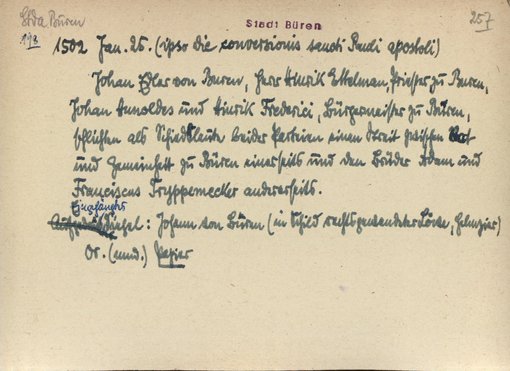 StdA Büren
Stadt Büren
257
193
1502 Jan. 25. (ipso die conversionis sancti Pauli apostoli)
Johan Edler von Buren, Herr Hinrik Ettelman, Priester zu Buren,
Johan Arnoldes und Hinrik Frederici, Bürgermeister zu Büren,
schlichten als Schiedsleute beider Parteien einen Streit zwischen Rat
und Gemeinheit zu Büren einerseits und den Brüder Adam und
Franciscus Tryppemecker andererseits.
Siegel: Johann von Büren (in Schild rechtsgewendeter Löwe, Helmzier)
Or. (mnd.) Papier